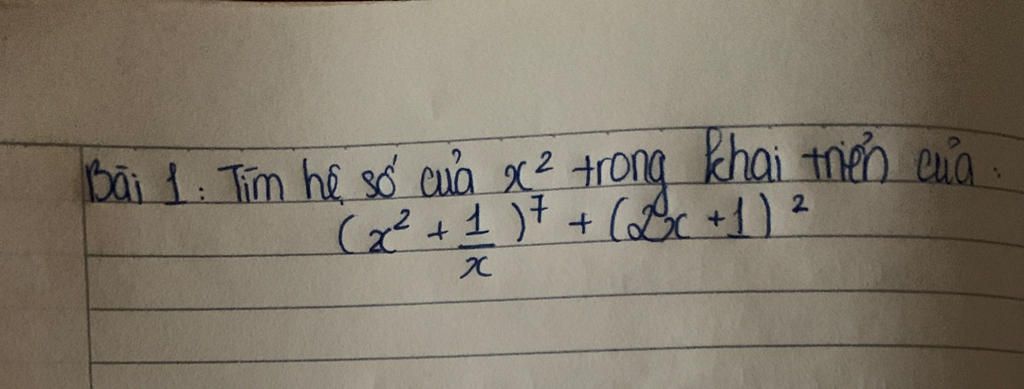 Bài 1: Tìm hệ số của x² trong khai triển của:
(x² + 1/x)⁷ + (2x + 1)²